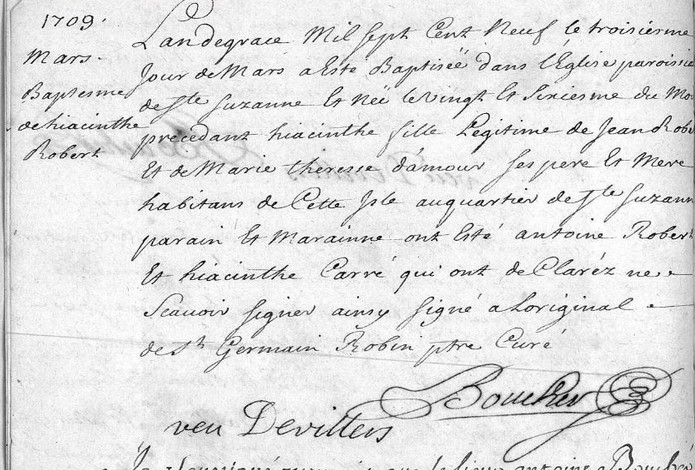 1709.
Mars.
Baptesme
de hiacinthe
Robert
Landegrace Mil sept Cent Neuf le troisiesme
Jour de Mars a Esté Baptisëë dans l'Eglise paroissia
de Ste Suzanne Et Nëë le vingt Et Sixiesme du Mo
precedant hiacinthe fille Legitime de Jean Robe
Et de Marie theresse d'amour ses pere Et Mere
habitans de Cette Isle auquartier de Ste Suzann
parain Et Marainne ont Esté antoine Rober
Et hiacinthe Carré qui ont deClaréz ne
Scavoir signer ainsy signé aloriginal
de St Germain Robin ptre Curé
Boucher
veu Devillers